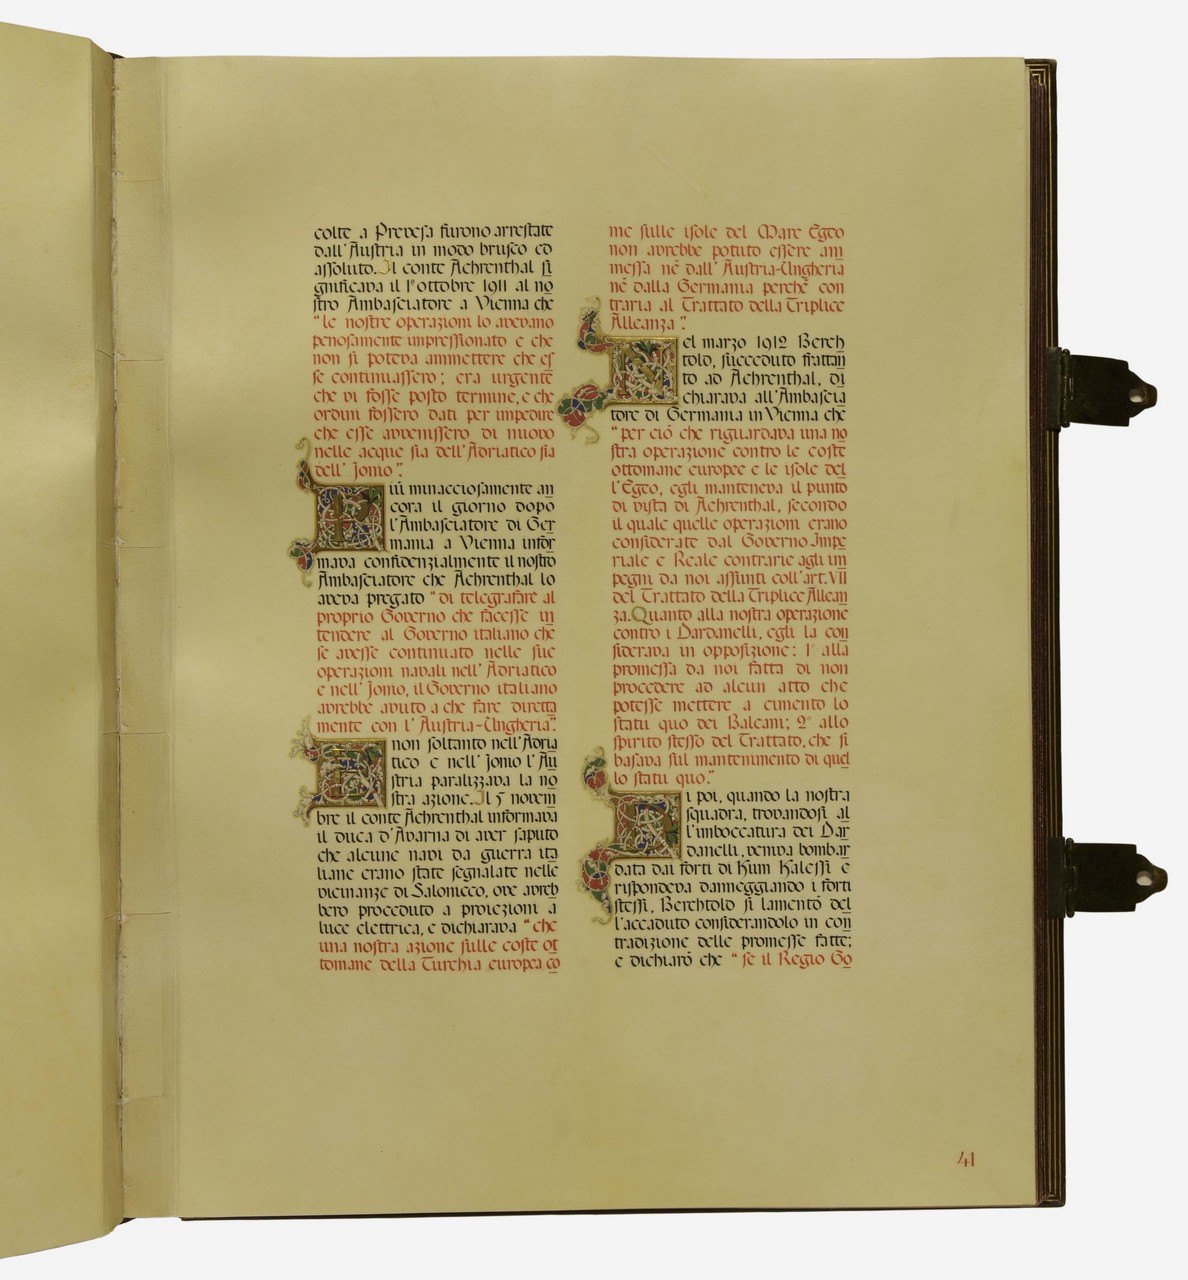 colte a Prevesa furono arrestate
dall'Austria in modo brusco ed
assoluto. Il conte Aehrenthal si
gnificava il 1° ottobre 1911 al no
stro Ambasciatore a Vienna che
"le nostre operazioni lo avevano
penosamente impressionato e che
non si poteva ammettere che es
se continuassero; era urgente
che vi fosse posto termine, e che
ordini fossero dati per impedire
che esse avvenissero di nuovo
nelle acque sia dell'Adriatico sia
dell'Jonio".
Più minacciosamente an
cora il giorno dopo
l'Ambasciatore di Ger
mania a Vienna infor
mava confidenzialmente il nostro
Ambasciatore che Aehrenthal lo
aveva pregato "di telegrafare al
proprio Governo che facesse in
tendere al Governo italiano che
se avesse continuato nelle sue
operazioni navali nell'Adriatico
e nell'Jonio, il Governo italiano
avrebbe avuto a che fare diretta
mente con l'Austria-Ungheria".
E non soltanto nell'Adria
tico e nell'Jonio l'Au
stria paralizzava la no
stra azione. Il 5 novem
bre il conte Aehrenthal informava
il duca d'Avarna di aver saputo
che alcune navi da guerra ita
liane erano state segnalate nelle
vicinanze di Salonicco, ove avreb
bero proceduto a proiezioni a
luce elettrica, e dichiarava "che
una nostra azione sulle coste ot
tomane della Turchia europea co
me sulle isole del Mare Egeo
non avrebbe potuto essere am
messa nè dall'Austria-Ungheria
nè dalla Germania perchè con
traria al Trattato della Triplice
Alleanza".
Nel marzo 1912 Berch
told, succeduto frattan
to ad Aehrenthal, di
chiarava all'Ambascia
tore di Germania in Vienna che
"per ciò che riguardava una no
stra operazione contro le coste
ottomane europee e le isole del
l'Egeo, egli manteneva il punto
di vista di Aehrenthal, secondo
il quale quelle operazioni erano
considerate dal Governo Impe
riale e Reale contrarie agli im
pegni da noi assunti coll'art. VII
del Trattato della Triplice Allean
za. Quanto alla nostra operazione
contro i Dardanelli, egli la con
siderava in opposizione: 1° alla
promessa da noi fatta di non
procedere ad alcun atto che
potesse mettere a cimento lo
statu quo dei Balcani; 2° allo
spirito stesso del Trattato, che si
basava sul mantenimento di quel
lo statu quo."
Di poi, quando la nostra
squadra, trovandosi al
l'imboccatura dei Dar
danelli, veniva bombar
data dai forti di Kum Kalessi e
rispondeva danneggiando i forti
stessi, Berchtold si lamentò del
l'accaduto considerandolo in con
tradizione delle promesse fatte;
e dichiarò che "se il Regio Go
41